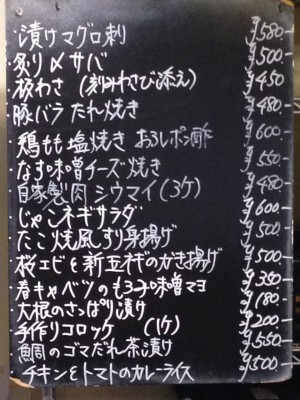 ・漬けマグロ刺 ¥580-
・炙り〆サバ ¥500-
・板わさ (刻みわさび添え) ¥450-
・豚バラ たれ焼き ¥480-
・鶏もも塩焼き おろしポン酢 ¥600-
・なす味噌チーズ焼き ¥550-
・自家製肉シウマイ(3ケ) ¥480-
・じゃこネギサラダ ¥600-
・たこ焼風すり身揚げ ¥500-
・桜エビと新玉ネギのかき揚げ ¥500-
・春キャベツのもろみ味噌マヨ ¥350-
・大根のさっぱり漬け ¥180-
・手作りコロッケ (1ケ) ¥200-
・鯛のゴマだれ茶漬け ¥550-
・チキンとトマトのカレーライス ¥500-